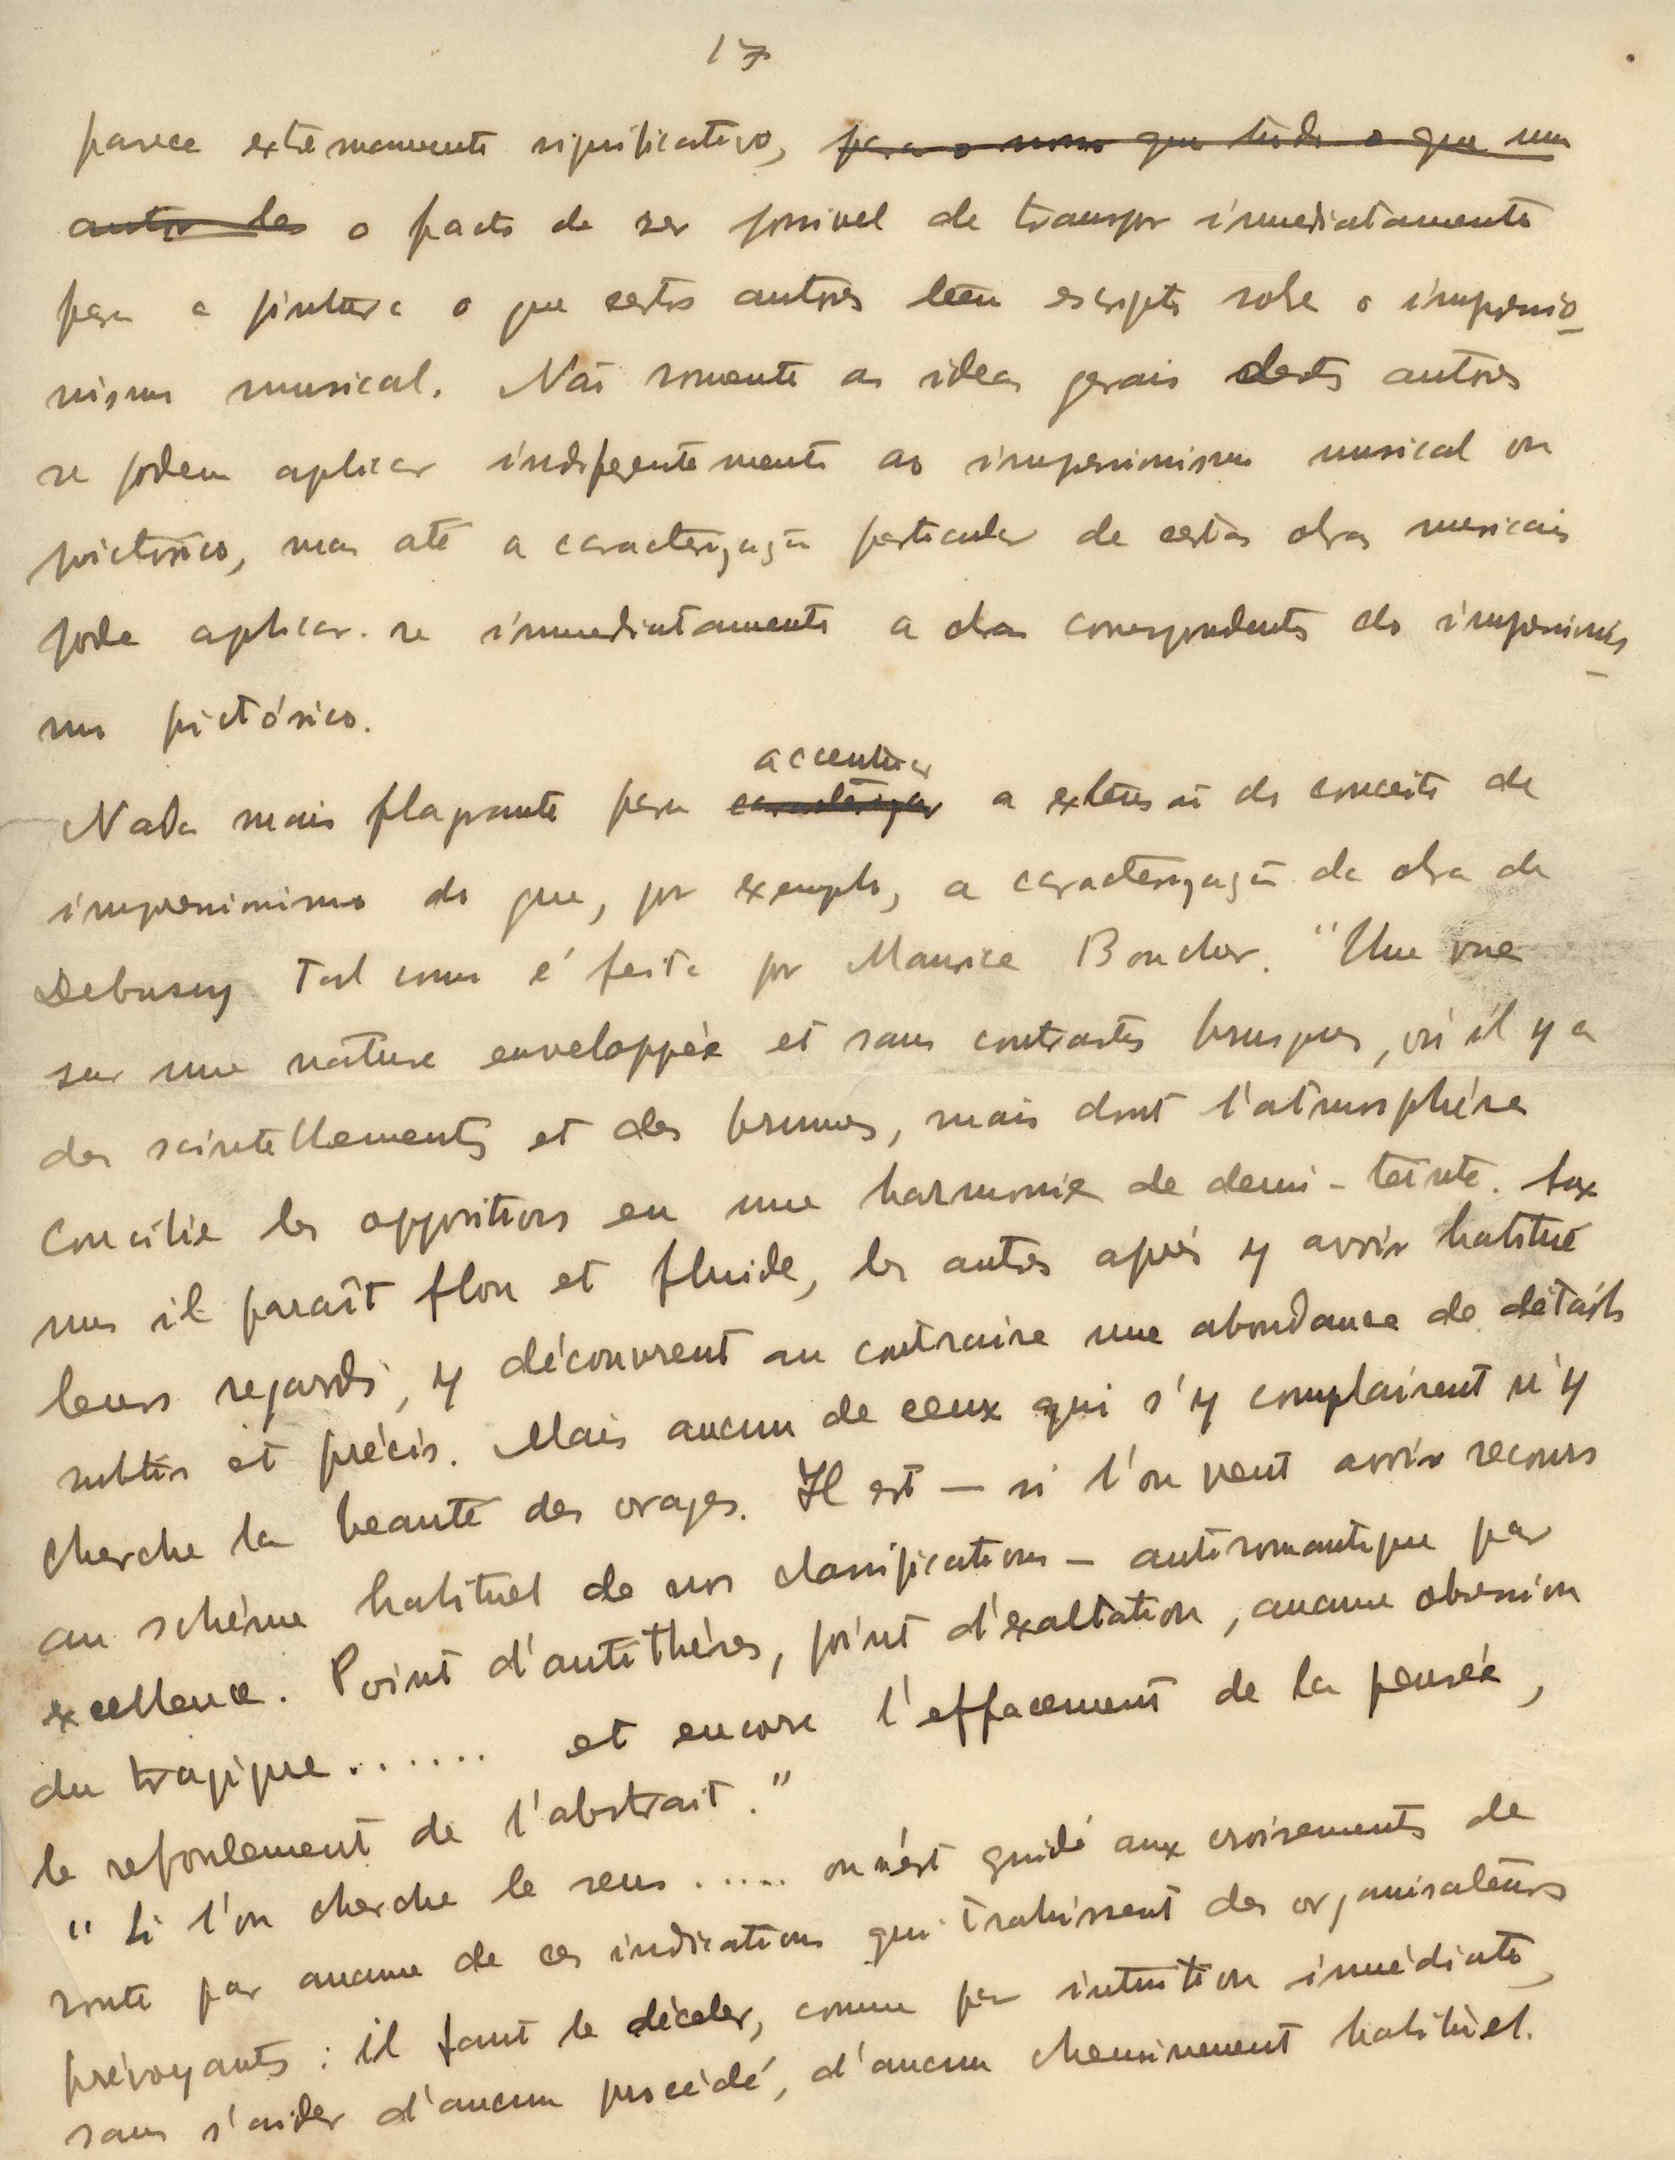 17
parece extremamente significativo, para o nosso que tudo o que um
autor les o facto de ser possivel de transpor immediatamente
para a pintura o que certos autores teem escripto sobre o impressio-
nismo musical. Não somente as ideas gerais destes autores
se podem aplicar indiferentemente ao impressionismo musical ou
pictórico, mas até a caracterização particular de certas obras musicais
pode aplicar-se immediatamente a obras correspondentes do impressionis-
mo pictórico.
accentuar
Nada mais flagrante para caracterizar a extensão do conceito de
impressionismo do que, por exemplo, a caracterização da obra de
Debussy tal como é feita por Maurice Boucher. "Une vue
sur une nature enveloppée et sans contrastes brusques, où il y a
des scintellements et des brumes, mais dont l'atmosphère
concilie les oppositions en une harmonie de demi-teinte. Aux
uns il paraît flou et fluide, les autres après y avoir habitué
leurs regards, y découvrent au contraire une abondance de détails
subtils et précis. Mais aucun de ceux qui s'y complaisent n'y
cherche la beauté des orages. Il est — si l'on veut avoir recours
au schème habituel de nos classifications — antiromantique par
excellence. Point d'antithèses, point d'exaltation, aucune obsession
du tragique...... et encore l'effacement de la pensée,
le refoulement de l'abstrait."
"Si l'on cherche le sens ..... on n'est guidé aux croisements de
route par aucune de ces indications qui trahissent des organisateurs
prévoyants : il faut le déceler, comme par intuition immédiate,
sans s'aider d'aucun procédé, d'aucun cheminement habituel.